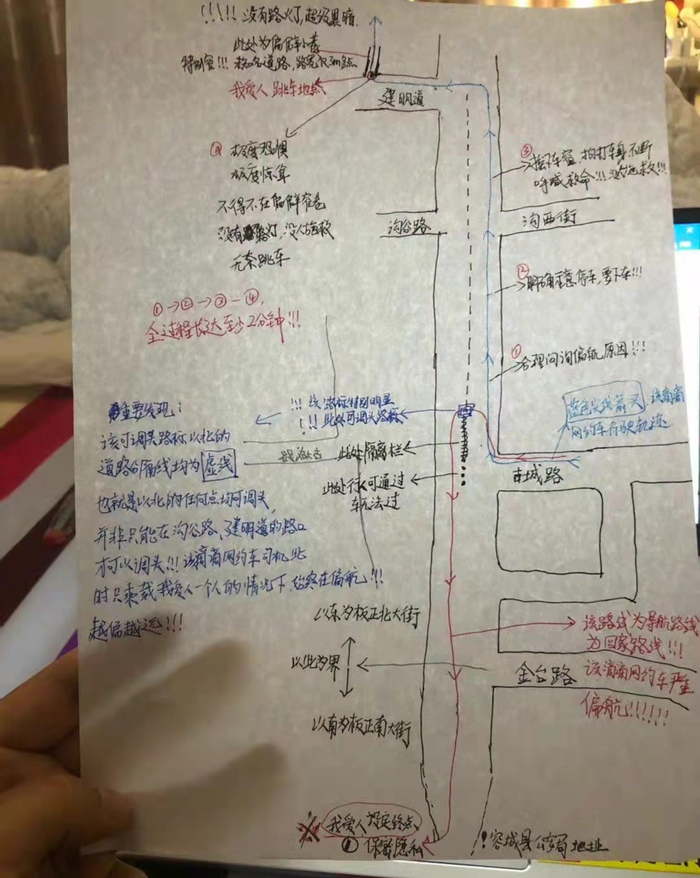 !!!!! 没有路灯,超级黑暗.
此处为偏僻小巷
特别窄!!!
我爱人跳车地点
建明道
④ 极度恐惧
极度恍惚
不得不在偏僻夜巷
没有路灯、没人施救
无奈跳车
③
拍打车身不断
呼喊救命!!!
沟谷路
沟西街
② 明确示意停车,要下车!!!
①→②→③-④,
全过程长达至少2分钟!!!
① 合理问询偏航原因!!!
重要发现:
!!! 该路标特别明显
!!! 此处可调头路标
蓝色实线箭头 该滴滴
网约车行驶轨迹
该可调头路标以北的
道路分隔线均为虚线
此处隔离栏
古城路
此处行人可通过
车无法过
也就是以北的任何点均可调头,
并非只能在沟谷路、建明道的路口
才可以调头!!! 该滴滴网约车司机此
时只乘载我爱人一个人的情况下,始终在偏航!!!
越偏越远!!!
以东为板正北大街
该路线为导航路线
为回家路线!!!
以此为界
金台路
该滴滴网约车严重
偏航!!!!!!
以南为板正南大街
※ 我爱人设定终点,
① 保密隐私
! 容城县公安局地址